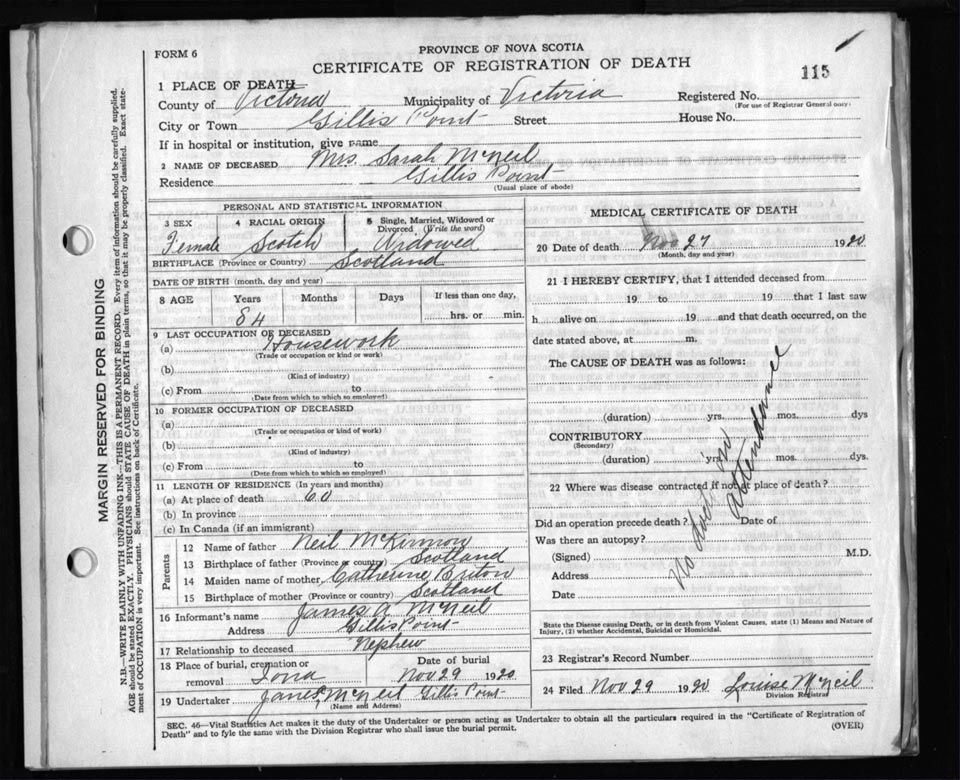 FORM 6
PROVINCE OF NOVA SCOTIA
CERTIFICATE OF REGISTRATION OF DEATH
115
1 PLACE OF DEATH
County of Victoria Municipality of Victoria Registered No.
(For use of Registrar General only)
City or Town Gillis Point Street House No.
If in hospital or institution, give name
2 NAME OF DECEASED Mrs. Sarah McNeil
Residence Gillis Point
(Usual place of abode)
PERSONAL AND STATISTICAL INFORMATION
3 SEX 4 RACIAL ORIGIN 5 Single, Married, Widowed or Divorced, (Write the word)
Female Scotch Widowed
BIRTHPLACE (Province or Country) Scotland
DATE OF BIRTH (month, day and year)
8 AGE Years Months Days If less than one day,
84 hrs. or min.
9 LAST OCCUPATION OF DECEASED
(a) Housework
(Trade or occupation or kind or work)
(b)
(Kind of industry)
(c) From to
(Date from which to which so employed)
10 FORMER OCCUPATION OF DECEASED
(a)
(Trade or occupation or kind of work)
(b)
(Kind of industry)
(c) From to
(Date from which to which so employed)
11 LENGTH OF RESIDENCE (In years and months)
(a) At place of death 60
(b) In province
(c) In Canada (if an immigrant)
Parents
12 Name of father Neil McKinnon
13 Birthplace of father (Province or country) Scotland
14 Maiden name of mother Catherine
15 Birthplace of mother (Province or country) Scotland
16 Informant's name James A McNeil
Address Gillis Point
17 Relationship to deceased Nephew
18 Place of burial, cremation or removal Iona
Date of burial Nov 29 1920
19 Undertaker McNeil Gillis Point
(Name and Address)
MEDICAL CERTIFICATE OF DEATH
20 Date of death Nov 27 1920
(Month, day and year)
21 I HEREBY CERTIFY, that I attended deceased from
19 to 19 that I last saw
h alive on 19 and that death occurred, on the
date stated above, at m.
The CAUSE OF DEATH was as follows:
(duration) yrs. mos. dys
CONTRIBUTORY
(Secondary)
(duration) yrs. mos. dys.
22 Where was disease contracted if not at place of death?
Did an operation precede death? Date of
Was there an autopsy?
(Signed) M.D.
Address
Date
No doct in attendance
State the Disease causing Death, or in death from Violent Causes, state (1) Means and Nature of Injury, (2) whether Accidental, Suicidal or Homicidal.
23 Registrar's Record Number
24 Filed Nov 29 1920 Louise McNeil
Division Registrar
SEC. 46—Vital Statistics Act makes it the duty of the Undertaker or person acting as Undertaker to obtain all the particulars required in the "Certificate of Registration of
Death" and to fyle the same with the Division Registrar who shall issue the burial permit.
(OVER)
MARGIN RESERVED FOR BINDING
N.B.—WRITE PLAINLY WITH UNFADING INK—THIS IS A PERMANENT RECORD. Every item of information should be carefully supplied.
AGE should be stated EXACTLY. PHYSICIANS should STATE CAUSE OF DEATH in plain terms, so that it may be properly classified. Exact state-
ment of OCCUPATION is very important. See instructions on back of Certificate.